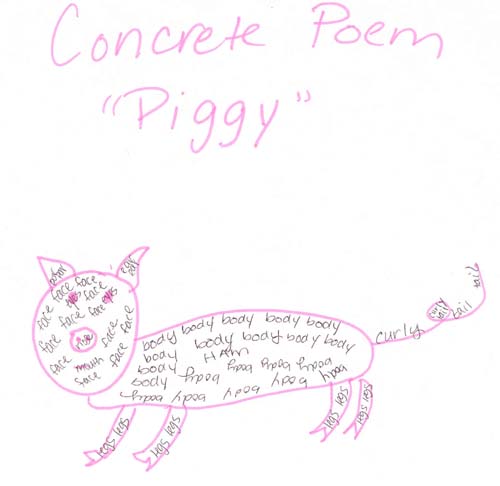 Concrete Poem
"Piggy"
ear
ear
face face
face eyes face
face face face eyes
face face
nose face
face mouth face
face
body body body body body
body body body body body
HAM
body body body body
body body body body body
body body body body
curly
curly
tail
tail
tail
legs legs
legs legs
legs legs
legs legs